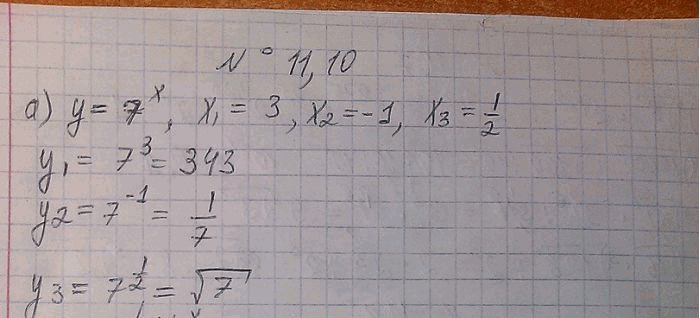 № 11,10
а) y = 7^x, x₁ = 3, x₂ = -1, x₃ = 1/2
y₁ = 7³ = 343
y₂ = 7⁻¹ = 1/7
y₃ = 7^(1/2) = √7